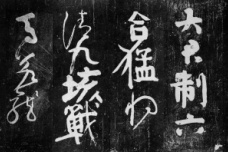 大君制六
合猛將
清九垓戰
馬若龍